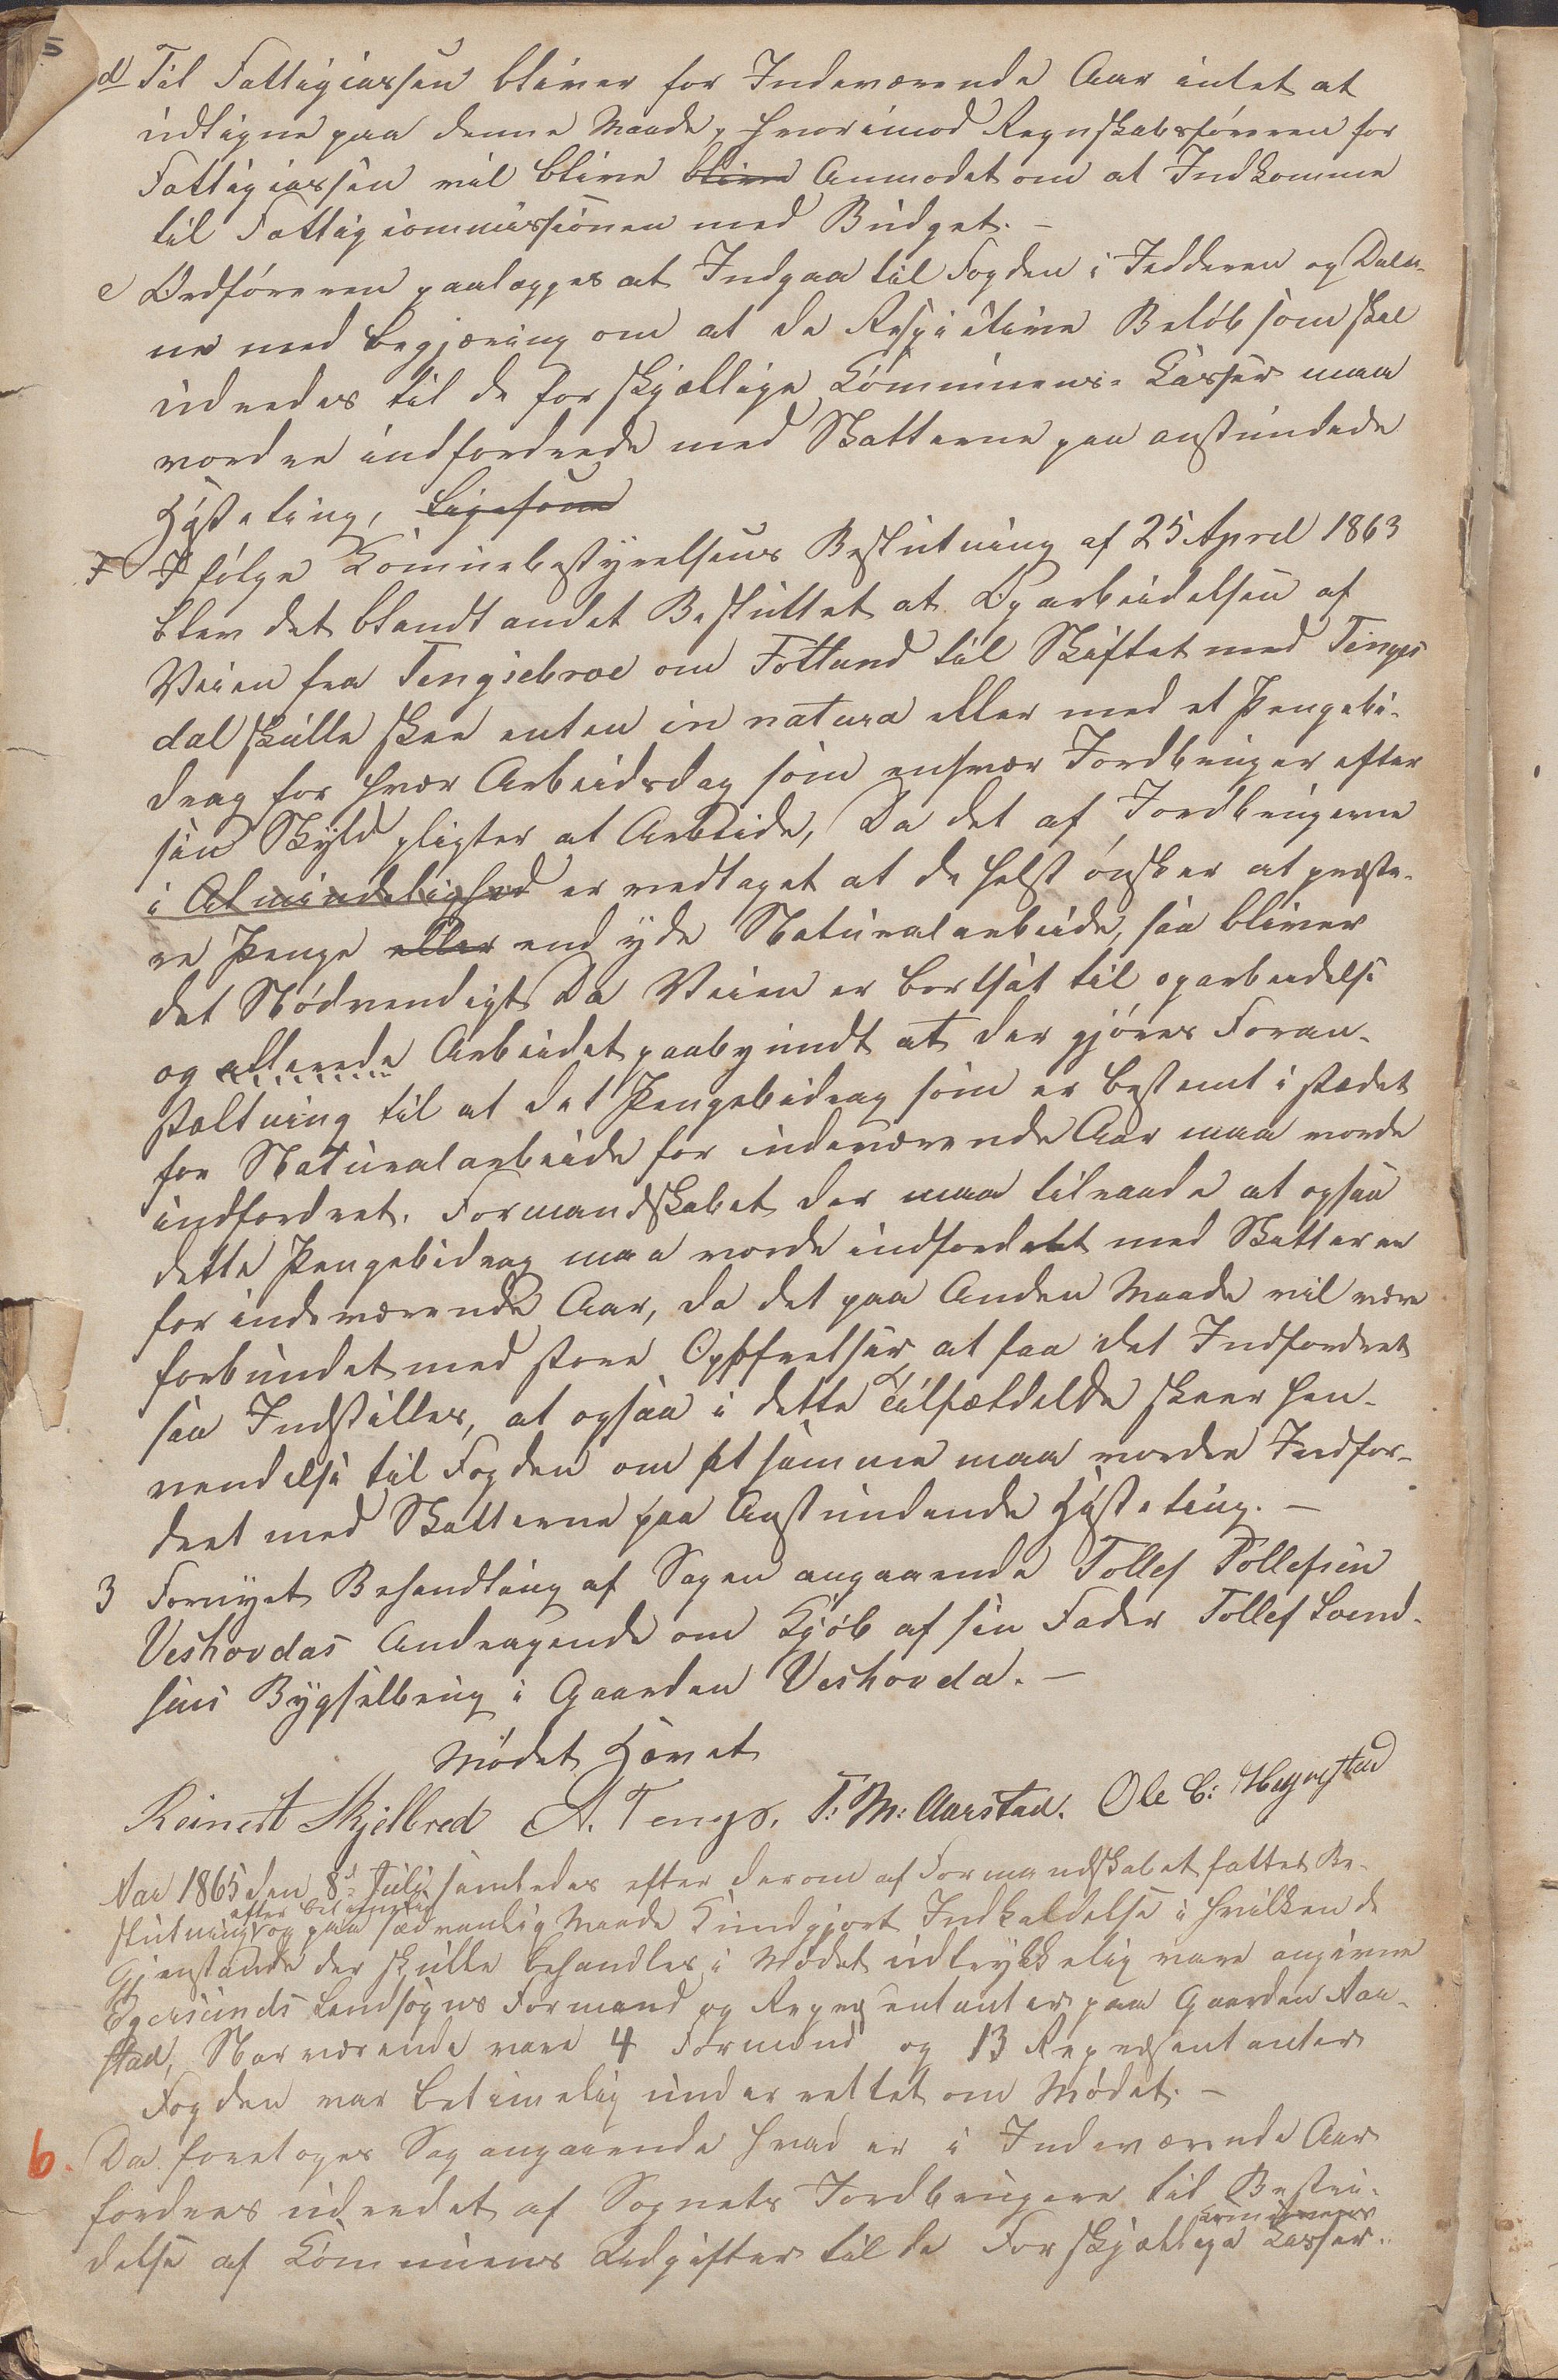 5
d Til Fattigcassen bliver for Indeværende Aar intet at
udligne paa denne Maade, hvorimod Regnskabsføreren for
Fattigcassen vil blive blive Anmodet om at Indkomme
til Fattigcommissionen med Budget. -
e Ordføreren paalægges at Indgaa til Fogden i Jedderen og Daler-
ne med Begjæring om at de Respective Beløb som skal
udredes til de forskjællige Communens-Casser maa
vordre indfordrede med Skatterne paa anstundede
Høsteting, ligesom
F Ifølge Comunebestyrelsens Beslutning af 25 April 1863
blev det blandt andet Besluttet at Oparbeidelsen af
Veien fra Tengsebroe om Fotland til Skiftet med Tengs
dal skulle skee enten in natura eller med et Pengebi-
drag for hver Arbeidsdag som enhver Jordbruger efter
sin Skyld pligter at Arbeide, Da det af Jordbrugerne
i Almindelighed er vedtaget at de helst ønsker at præste-
re Penge eller end yde Naturalarbeide, saa bliver
det Nødvendigt Da Veien er bortsat til oparbeidelse
og allerede Arbeidet paabyndt at der gjøres Foran-
staltning til at det Pengebidrag som er bestemt i stædet
for Naturalarbeide for indeværende Aar maa vorde
indfordret. Formandskabet der maa tilraade at ogsaa
dette Pengebidrag maa vorde indfordett med Skatterne
for indeværende Aar, da det paa Anden Maade vil være
forbundet med store Opofrelser, at faa det Indfordret
saa Indstilles, at ogsaa i dette Tilfældelde skeer Hen-
vendelse til Fogden om at samme maa vordre Indfor-
dret med Skatterne paa Anstundende Høsteting. -
3 Fornyet Behandling af Sagen angaaende Tollef Tollefsen
Veshovdas Andragende om Kjøb af sin Fader Tollef Svend-
sens Bygselbrug i Gaarden Veshovda. -
Mødet Hævet
Reinert Skjelbred A. Tengs. T: M: Aarstad. Ole C: Hegrestad
Aar 1865 den 8d Juli samledes efter derom af Formandskabet fattet Be-
efter betimelig
slutning og paa sædvanlig Maade Kundgjort Indkaldelse i hvilken de
Gjenstande der skulle behandles i Mødet udtrykkelig vare angivne
Egersunds Landsogns Formænd og Repræsentanter paa Gaarden Aar-
stad, Nærværende vare 4 Formænd og 13 Repræsentanter
Fogden var betimelig underrettet om Mødet. -
6. Da foretoges Sag angaaende hvad er i Indeværende Aar
fordres udredet af Sognets Jordbrugere til Bestri-
Comunens
delse af Communens Udgifter til de Forskjællige Casser.